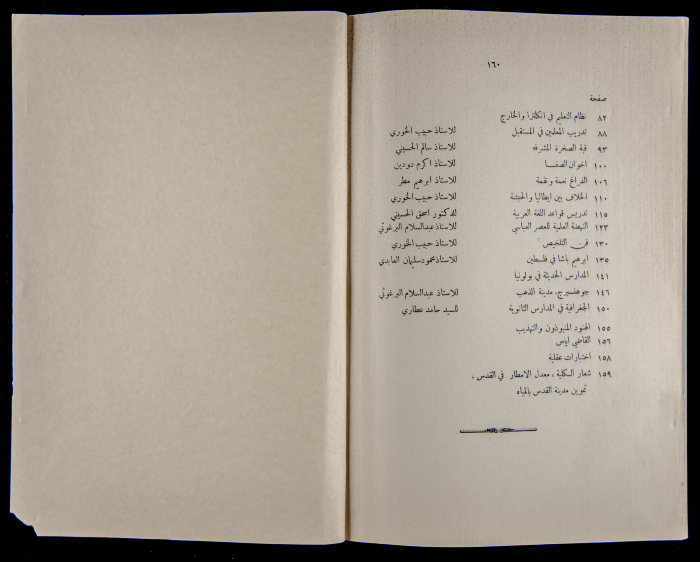 ١٦٠
صفحة
٨٢ نظام التعليم في انكلترا والخارج
٨٨ تدريب المعلمين في المستقبل للاستاذ حبيب الخوري
٩٣ قبة الصخرة المشرفه للاستاذ سالم الحسيني
١٠٠ اخوان الصفا للاستاذ اكرم دودين
١٠٦ الفراغ نعمة ونقمة للاستاذ ابرهيم مطر
١١٠ الخلاف بين ايطاليا والحبشة للاستاذ حبيب الخوري
١١٥ تدريس قواعد اللغة العربية للدكتور اسحق الحسيني
١٢٣ النهضة العلمية للعصر العباسي للاستاذ عبدالسلام البرغوثي
١٣٠ فن التلخيص للاستاذ حبيب الخوري
١٣٥ ابرهيم باشا في فلسطين للاستاذ محمود سليمان العابدي
١٤١ المدارس الحديثة في بولونيا
١٤٦ جوهنسبرج، مدينة الذهب للاستاذ عبدالسلام البرغوثي
١٥٠ الجغرافية في المدارس الثانوية للسيد حامد عطاري
١٥٥ الهنود المنبوذون والتهذيب
١٥٦ القاضي ايس
١٥٨ اختبارات عقلية
١٥٩ شعار الكلية ، معدل الامطار في القدس ،
تموين مدينة القدس بالمياه